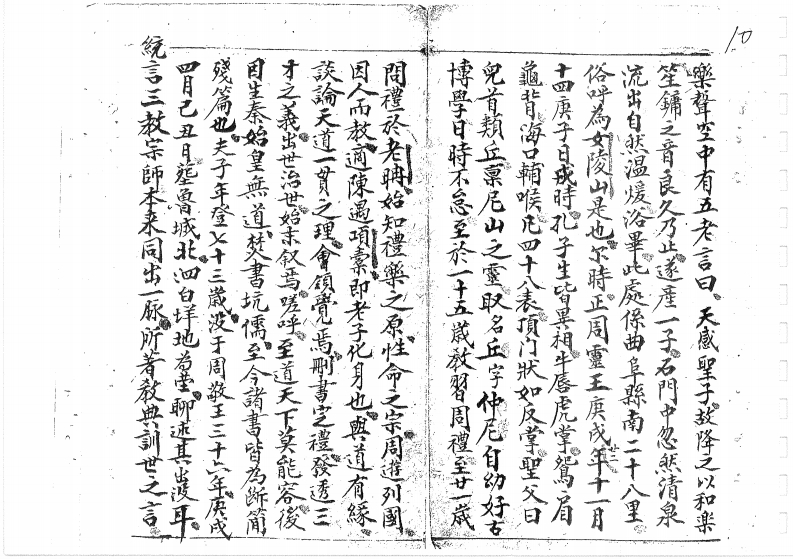 10
樂聲空中有五老言曰天感聖子故降之以和樂
笙鏞之音良久乃止遂產一子石門中忽然清泉
流出自然温煖浴畢此處係曲阜縣南二十八里
俗呼為女陵山是也尔時正周靈王庚戌年十一月
十四庚子日戌時孔子生皆異相牛唇虎掌鴛眉
龜背海口輔喉凡四十八表頂門狀如反掌聖父曰
兒首類丘禀尼山之靈取名丘字仲尼自幼好古
博學日時不怠至於一十五歲教習周禮至廿一歲
問禮於老聃始知禮樂之原性命之宗周遊列國
因人而教適陳遇項橐即老子化身也與道有緣
談論天道一貫之理會領覺焉刪書定禮發透三
才之義出世治世始末叙焉嗟呼至道天下莫能容後
因生秦始皇無道焚書坑儒至今諸書皆為断簡
殘篇也夫子年登七十三歲没于周敬王三十六年庚戌
四月己丑日塟魯城北泗白垟地為塋聊述其出没耳
統言三教宗師本来同出一脉所著教典訓世之言